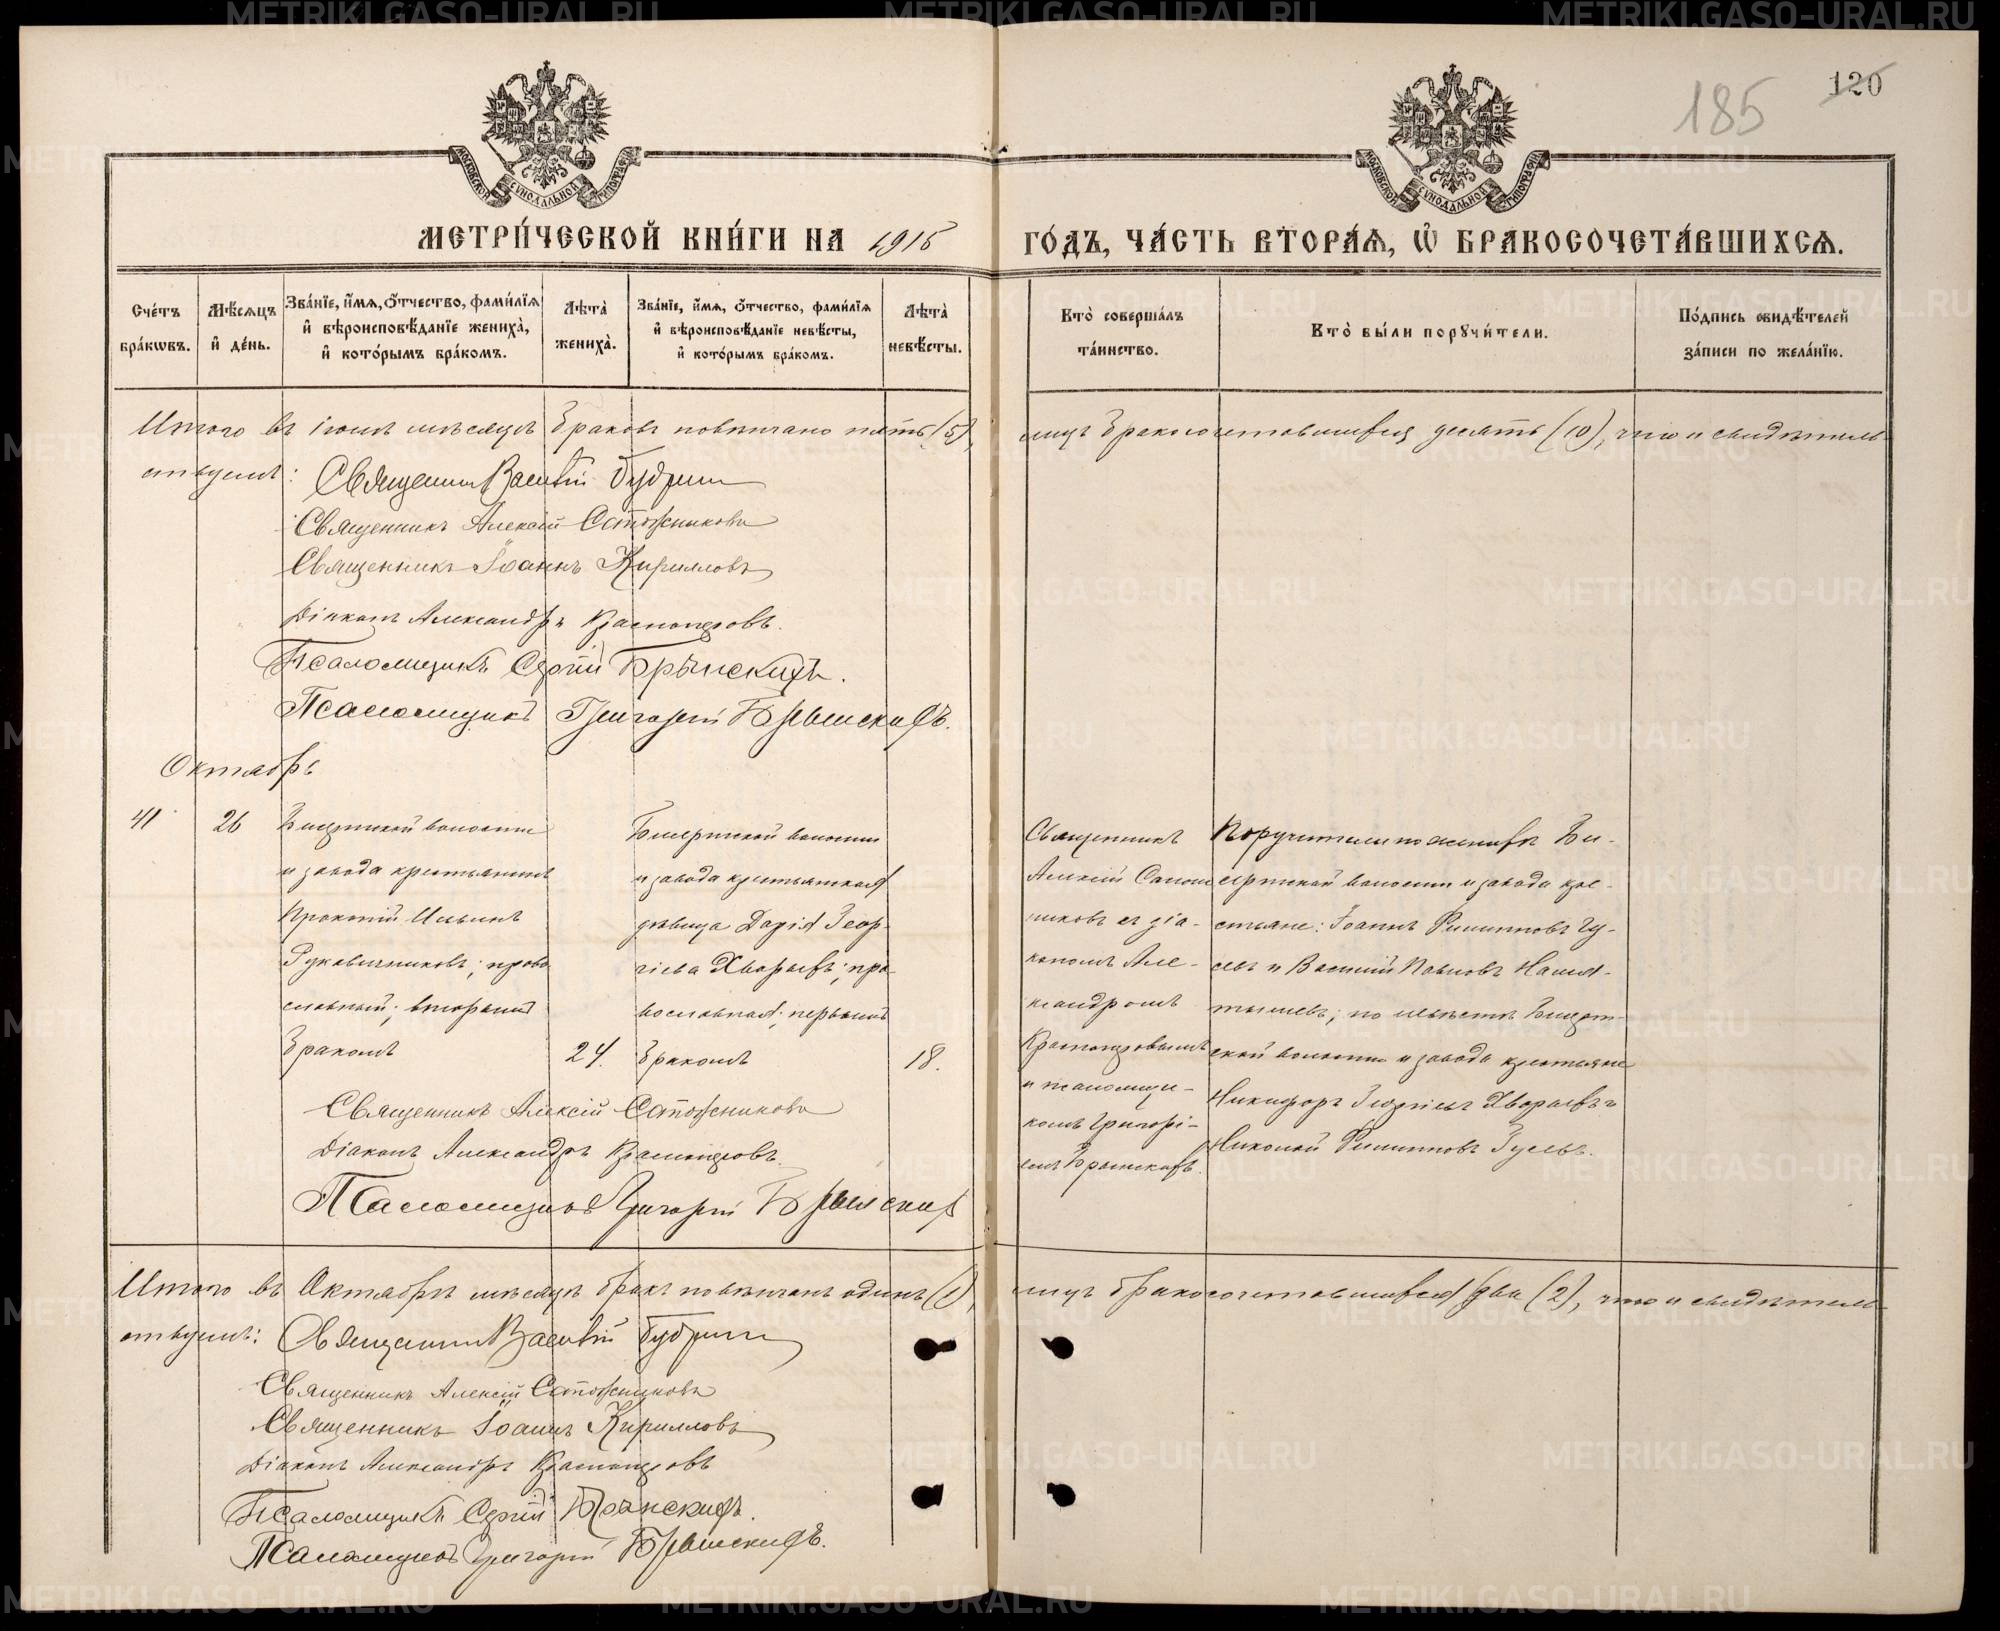 185
120
МОСКОВСКОЙ СУНОДАЛЬНОЙ ТИПОГРАФІИ
МОСКОВСКОЙ СУНОДАЛЬНОЙ ТИПОГРАФІИ
МЕТРИ́ЧЕСКОЙ КНИ́ГИ НА 1915 ГО́ДЪ, ЧА́СТЬ ВТОРА́Ѧ, Ѡ҆ БРАКОСОЧЕТА́ВШИХСѦ.
Сче́тъ бра́кѡвъ.
Мѣ́сѧцъ и҆ де́нь.
Зва́нїе, и҆́мѧ, ѻ҆́тчество, фами́лїѧ и҆ вѣроисповѣ́данїе жениха̀, и҆ кото́рымъ бра́комъ.
Лѣ́та̀ жениха̀.
Зва́нїе, и҆́мѧ, ѻ҆́тчество, фами́лїѧ и҆ вѣроисповѣ́данїе невѣ́сты, и҆ кото́рымъ бра́комъ.
Лѣ́та̀ невѣ́сты.
Кто̀ соверша́лъ та́инство.
Кто̀ бы́ли порꙋчи́тели.
По́дпись свидѣ́телей за́писи по жела́нїю.
Итого въ іюлѣ мѣсяцѣ браковъ повѣнчано пять (5), лицъ бракосочетавшихся десять (10), что и свидѣтель-
ствуемъ: Священникъ Василій Будринъ
Священникъ Алексій Сапожниковъ
Священникъ Іоаннъ Кирилловъ
Діаконъ Александръ Красноперовъ.
Псаломщикъ Сергій Брѣнскихъ.
Псаломщикъ Григорій Брынскихъ.
Октябрь
41
26
Бисертской волости
и завода крестьянинъ
Прокопій Ильинъ
Рукавичниковъ; право-
славный; вторымъ
бракомъ
24.
Бисертской волости
и завода крестьянская
дѣвица Дарія Геор-
гіева Хворыхъ; пра-
вославная; первымъ
бракомъ
18.
Священникъ
Алексій Сапож-
никовъ съ діа-
кономъ Але-
ксандромъ
Красноперовымъ
и псаломщи-
комъ Григорі-
емъ Брынскихъ.
Поручители по женихѣ Би-
сертской волости и завода кре-
стьяне: Іоаннъ Филипповъ Гу-
севъ и Василій Павловъ
по невѣстѣ Бисерт-
ской волости и завода крестьяне
Никифоръ Георгіевъ Хворыхъ и
Николай Филипповъ Гусевъ.
Священникъ Алексій Сапожниковъ
Діаконъ Александръ Красноперовъ.
Псаломщикъ Григорій Брынскихъ
Итого въ Октябрѣ мѣсяцѣ бракъ повѣнчанъ одинъ (1), лицъ бракосочетавшихся два (2), что и свидѣтель-
ствуемъ: Священникъ Василій Будринъ
Священникъ Алексій Сапожниковъ
Священникъ Іоаннъ Кирилловъ
Діаконъ Александръ Красноперовъ
Псаломщикъ Сергій Брѣнскихъ.
Псаломщикъ Григорій Брынскихъ.
METRIKI.GASO-URAL.RU